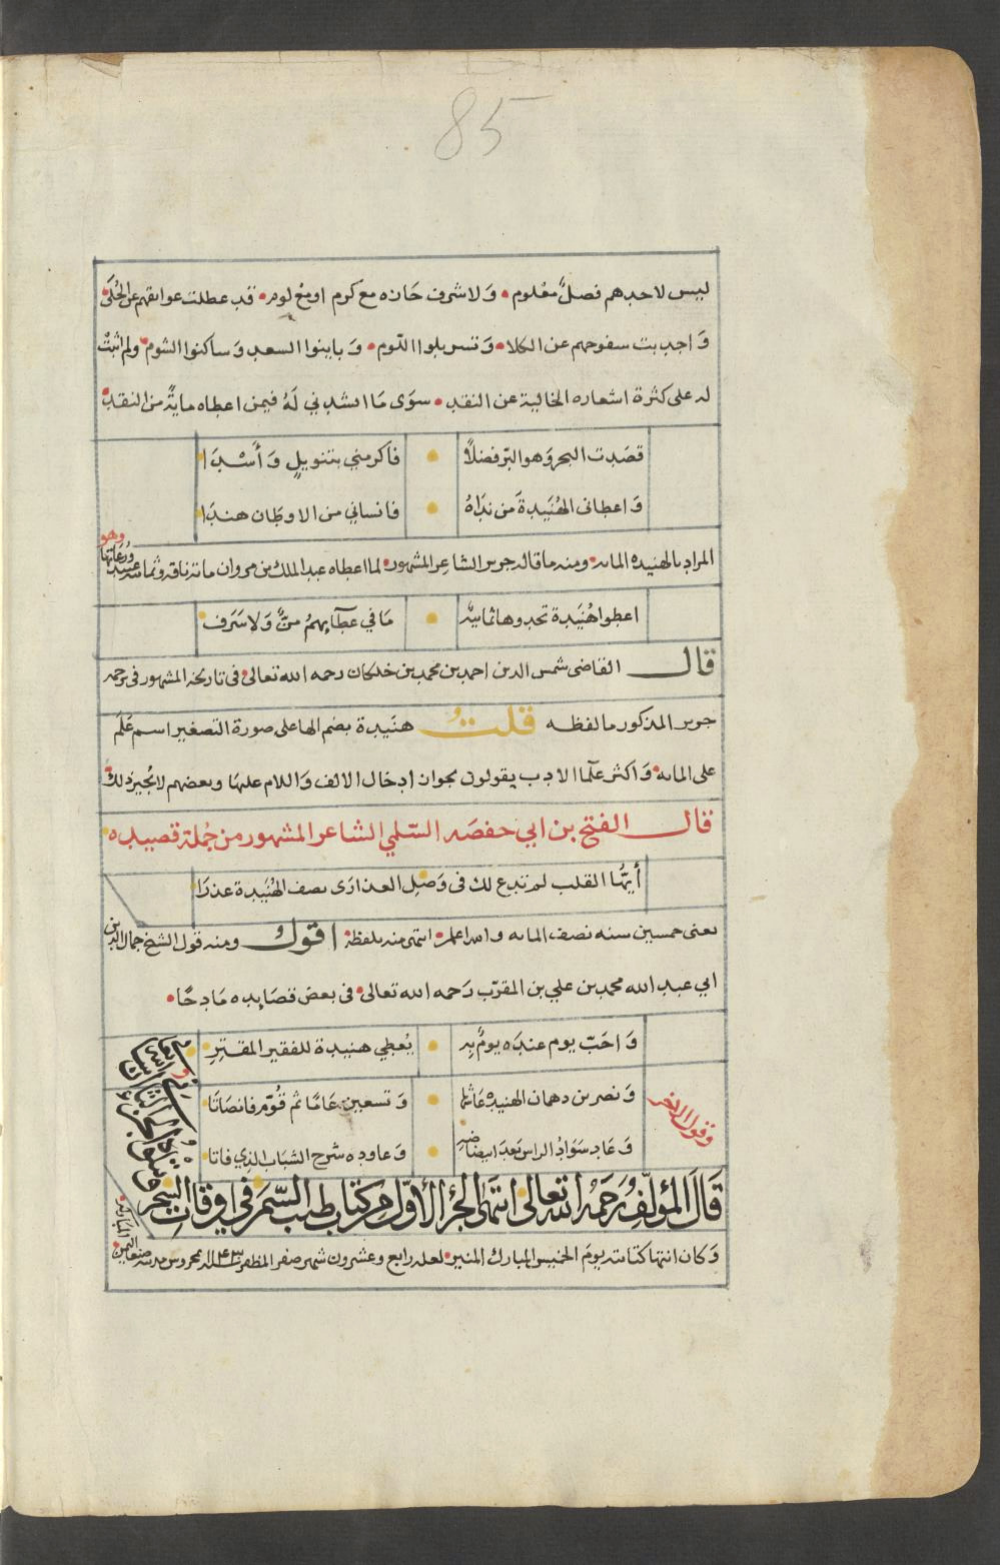 85
ليس لاحدهم فضلٌ معلوم • وَلا شرف حَازه مع كرم او مع لوم • قد عطلت عواتقهم عن الحُلَى •
وَ اجدبت سفوحهم عن الكلا • وَ تسربلوا اللوم • وَ باينوا السعد وَ ساكنوا الشوم • ولم اثبتْ
له على كثرة اشعاره الخالية عن النقد • سوَى مَا انشدني لَهُ فيمن اعطاه مايةً من النقد •
قصَدت البحرَ وهو البرّ فضلاً • فاكرمني بتنويلٍ وَ أَسْدَا
وَ اعطانى الهُنَيدةَ من نداهُ • فانساني من الاوطَان هندَا
المراد بالهنيده المايه • ومنه ما قاله جرير الشاعر المشهور • لما اعطاه عبد الملك بن مروان ماية ناقه وثمانية عبيد ورُعَاتها وهو
اعطوا هُنَيدة تحدوها ثمانيةٌ • مَا في عطآيهمُ منٌّ وَلا سَرَف
قال القاضى شمس الدين احمد بن محمد بن خلكان رحمه الله تعالى • فى تاريخه المشهور فى ترجمة
جرير المذكور ما لفظه قلتُ هنَيدة بضم الها على صورة التصغير اسم عَلَم
على المايه • وَ اكثر علما الادب يقولون بجواز ادخال الالف وَاللام عليها وبعضهم لا يُجيز ذلك
قال الفتح بن ابي حفصَه السّلمي الشاعر المشهور من جُملة قصيده •
أيّها القلب لم تدع لك فى وَصل العذارَى نصف الهُنَيدة عذرَا
يعنى خمسين سنه نصف المايه والله اعلم • انتهى منه بلفظه • اقول ومنه قول الشيخ جمال الدين
ابي عبد الله محمد بن علي بن المقرّب رَحمه الله تعالى • فى بعض قصَايده مَادحًا •
وَ احَبّ يوم عندَه يومٌ بهِ • يُعطي هنيدة للفقير المقترِ
وقول الاخر
وَ نصر بن دهمان الهنيدةَ عَاشها • وَ تسعين عَامًا ثم قُوّم فانصَاتا
وَ عَاد سَوَادُ الراس بَعدَ ابيضاضهِ • وَ عاوده شرخ الشبَاب الذي فاتا
قَالَ المؤلّفُ رَحِمَهُ الله تعالى انتهَى الجُز الأوّل من كتاب طيب السّمَر في اوقات السّحر
وَ كان انتها كتابته يومَ الخميس المبارك المنير • لعله رابع وعشرون شهر صفر المظفر